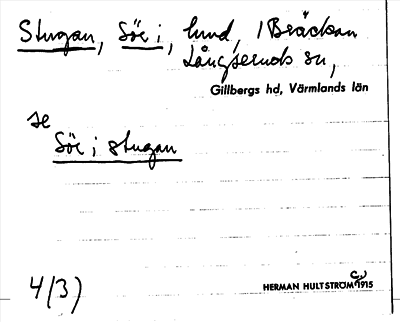 Stugan, Söe i, lund, / Bräckan
Långseruds sn,
Gillbergs hd, Värmlands län
se
Söe i stugan
4/3)
HERMAN HULTSTRÖM 1915